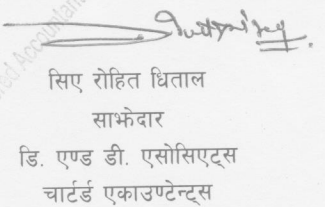 सिए रोहित धिताल
साझेदार
डि. एण्ड डी. एसोसिएट्स
चार्टर्ड एकाउण्टेन्ट्स